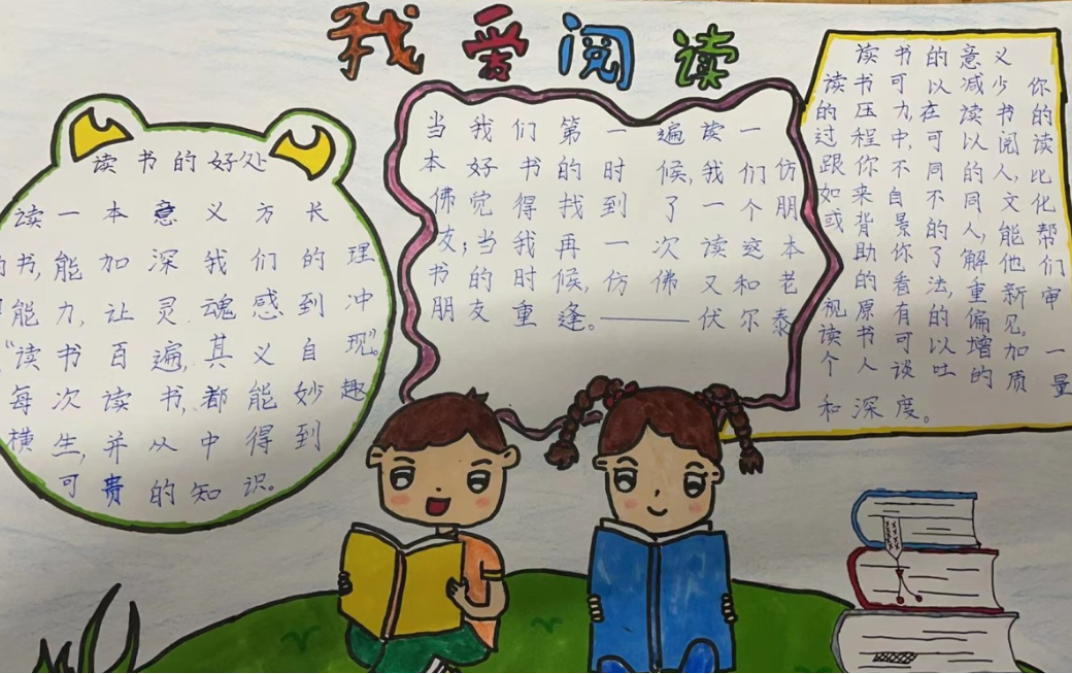 我爱阅读
读书的好处
读一本意义方长
的书,能加深我们的理
能力,让灵魂感到冲
“读书百遍,其义自现”。
每次读书,都能妙趣
横生,并从中得到
可贵的知识。
当我们第一遍读一
本好书的时候,我们仿
佛觉得找到了一个朋
友;当我再一次读这本
书的时候,仿佛又和老
朋友重逢。——伏尔泰
读书的意义
读书可以减少你
的压力,在读书的
过程中,可以阅读
跟你不同的人,比
如来自不同文化
或背景的人,能帮
助你了解他们
的看法,重新审
视原有的偏见。
读书可以增加一
个人谈吐的质量
和深度。